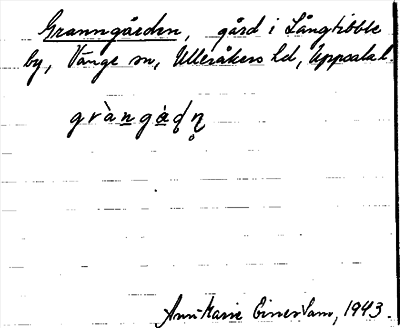 Granngården, gård i Långtibble
by, Vänge sn, Ulleråkers hd, Uppsala l.
gràngàɖn̥
Ann Marie Einerstam, 1943.